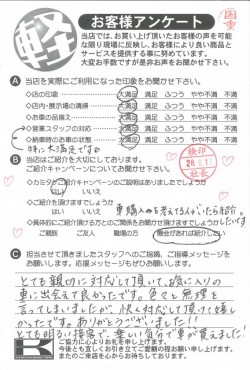 軽
お客様アンケート
当店では、お買い上げ頂いたお客様の声を可能な限り現場に反映し、お客様により良い商品とサービスを提供する事に努めています。
大変お手数ですが是非お声をお聞かせ下さい。
A 当店を実際にご利用になった印象をお聞かせ下さい。
◇店の印象 大満足 満足 ふつう やや不満 不満
◇店内・展示場の清掃 大満足 満足 ふつう やや不満 不満
◇お車の品揃え 大満足 満足 ふつう やや不満 不満
◇営業スタッフの対応 大満足 満足 ふつう やや不満 不満
◇納車時のお車の状態 大満足 満足 ふつう やや不満 不満
特に大満足です
検印
社長
B 当店はご紹介を大切にしております。
ご紹介キャンペーンについてお聞かせ下さい。
ご紹介キャンペーンのご説明はありましたでしょうか
はい いいえ
◇ご紹介を頂けますでしょうか
はい いいえ
車購入を考えてる人がいたら紹介
◇具体的にご紹介頂ける方とのご関係をお聞かせ頂けますでしょうか
ご親族 ご友人 職場の方 機会があれば紹介したい
C 担当させて頂きましたスタッフへのご指摘、ご指導メッセージをお願いします。応援メッセージもぜひお願いします。
とても親切に対応して頂いて、お気に入りの
車に出会えて良かったです。色々と無理を
言ってしまいましたが、快く対応して頂けて嬉し
かったです。ありがとうございました!!
とても明るい接客で、楽しい気分で車が買えました!
ご協力に心よりお礼を申し上げます。
今後とも宜しくお引き立てご愛顧の程お願い申し上げます。
またのご来店を心からお待ちしております。